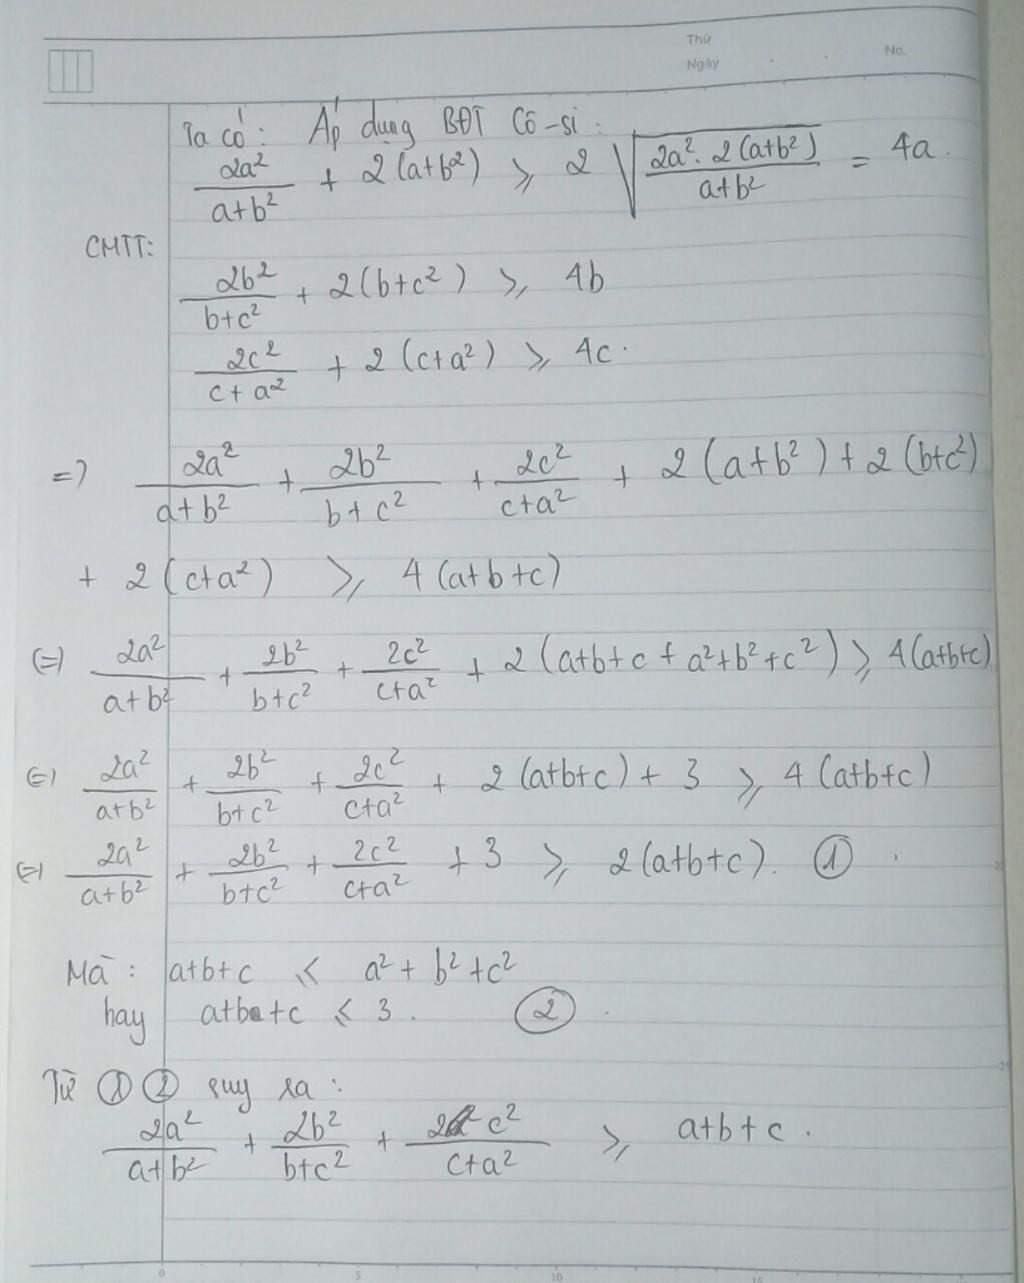 Thứ
Ngày . . No.
Ta có: Áp dụng BĐT Cô-si:
2a²/(a+b²) + 2(a+b²) ⩾ 2√(2a².2(a+b²)/(a+b²)) = 4a.
CMTT:
2b²/(b+c²) + 2(b+c²) ⩾ 4b
2c²/(c+a²) + 2(c+a²) ⩾ 4c.
=) 2a²/(a+b²) + 2b²/(b+c²) + 2c²/(c+a²) + 2(a+b²) + 2(b+c²)
+ 2(c+a²) ⩾ 4(a+b+c)
(=) 2a²/(a+b²) + 2b²/(b+c²) + 2c²/(c+a²) + 2(a+b+c+a²+b²+c²) ⩾ 4(a+b+c)
(=) 2a²/(a+b²) + 2b²/(b+c²) + 2c²/(c+a²) + 2(a+b+c) + 3 ⩾ 4(a+b+c)
(=) 2a²/(a+b²) + 2b²/(b+c²) + 2c²/(c+a²) + 3 ⩾ 2(a+b+c). ①
Mà: a+b+c ⩽ a²+b²+c²
hay a+b+c ⩽ 3. ②
Từ ① ② suy ra:
2a²/(a+b²) + 2b²/(b+c²) + 2c²/(c+a²) ⩾ a+b+c.
0 5 10 15